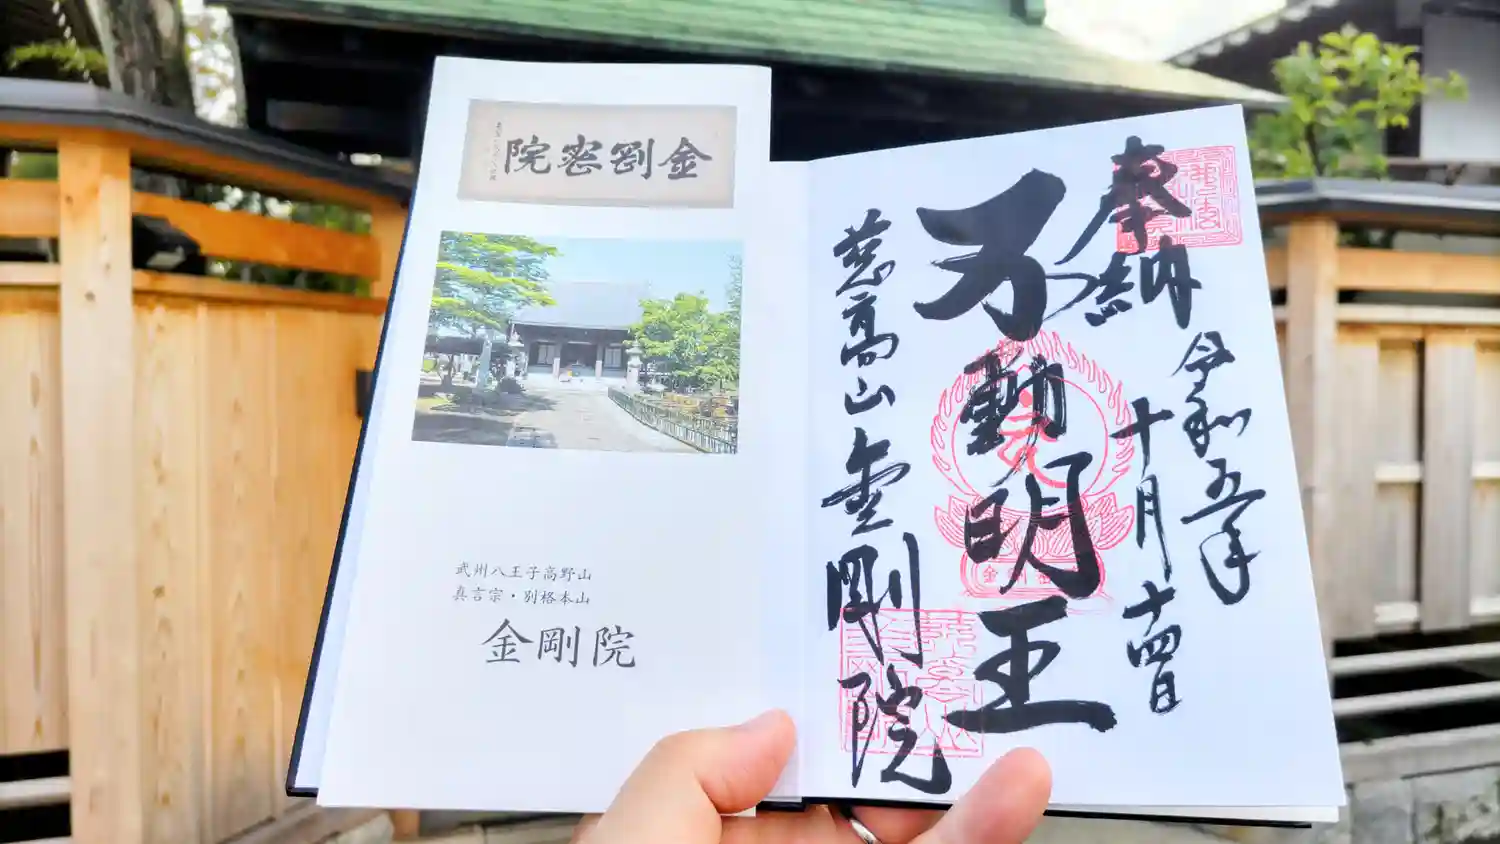 金剛密院
武州八王子高野山
真言宗・別格本山
金剛院
奉納
令和五年
十月十四日
不動明王
慈高山金剛院